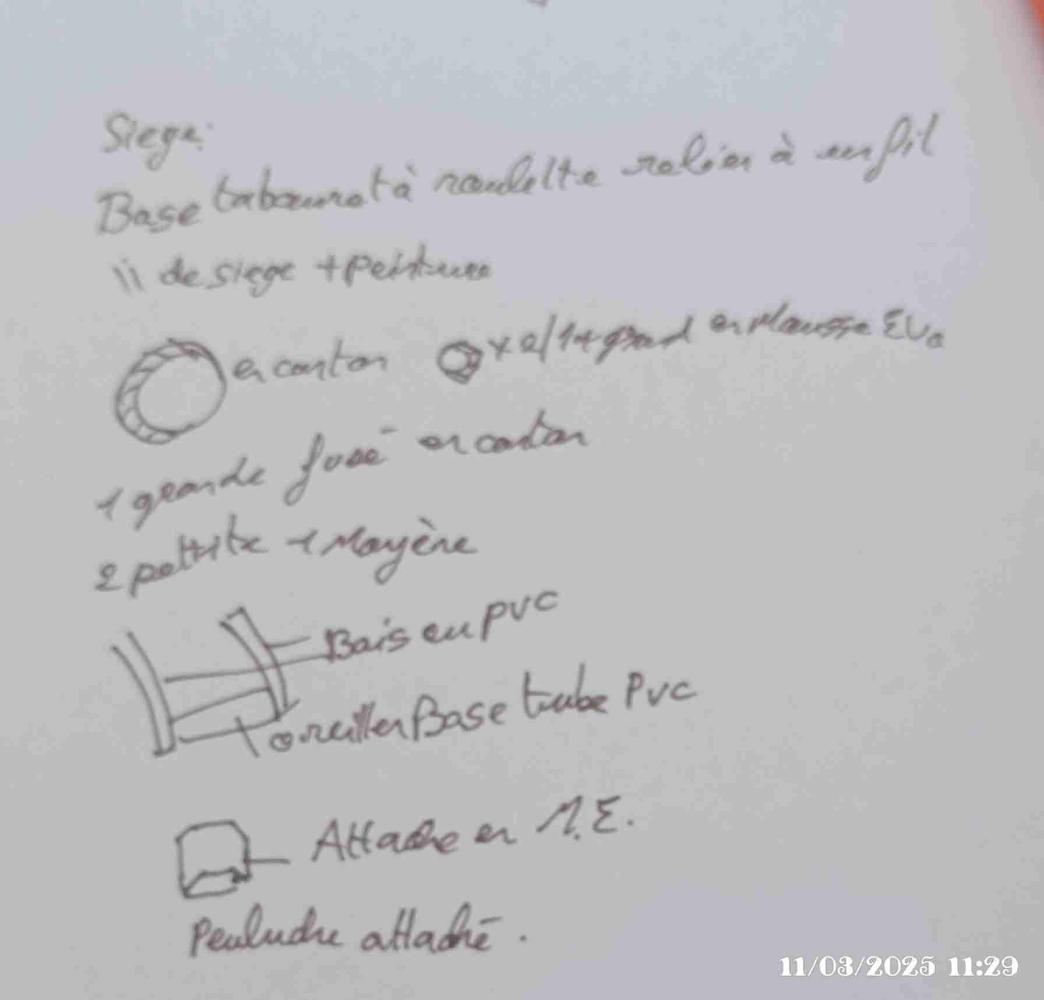 Siege:
Base tabouret à roulette relier à un fil
de siege + peinture
en carton x2/1+grand en Mousse EVa
1 grande fusé en carton
2 pettite 1 Moyène
Bais en PVC
oreiller Base tube PVC
Attache en M.E.
Peuluche attaché.
11/03/2025 11:29